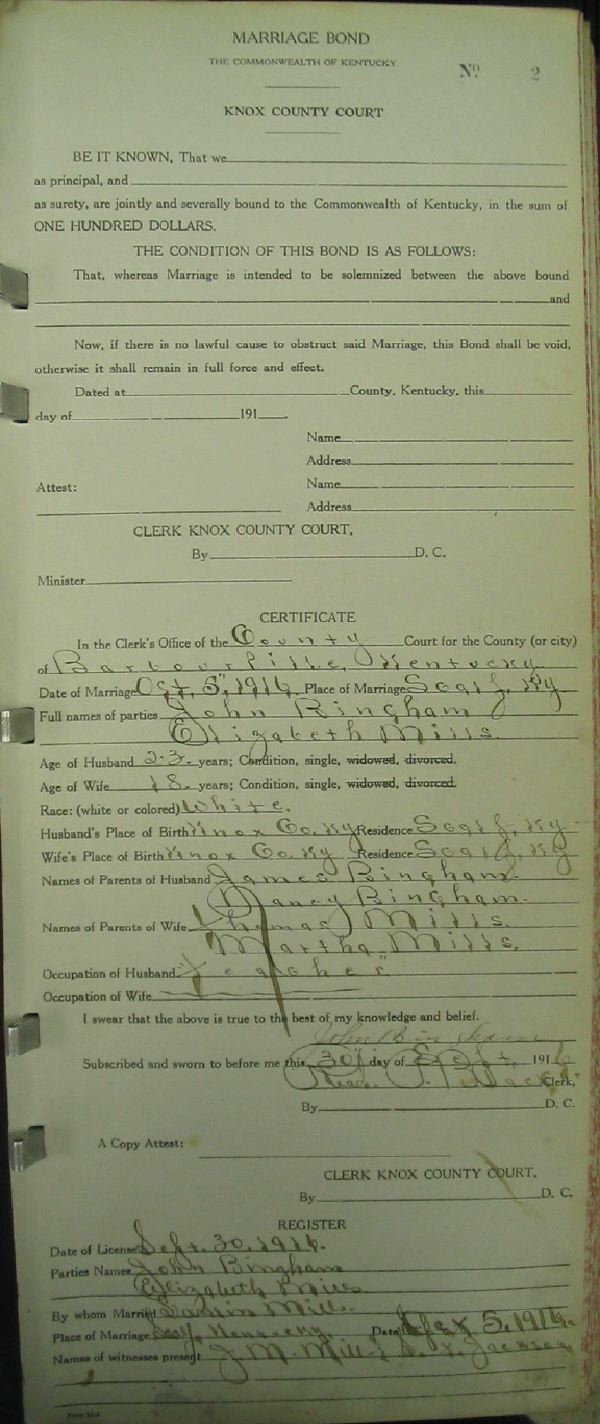 MARRIAGE BOND
THE COMMONWEALTH OF KENTUCKY
No 2
KNOX COUNTY COURT
BE IT KNOWN, That we
as principal, and
as surety, are jointly and severally bound to the Commonwealth of Kentucky, in the sum of
ONE HUNDRED DOLLARS.
THE CONDITION OF THIS BOND IS AS FOLLOWS:
That, whereas Marriage is intended to be solemnized between the above bound
and
Now, if there is no lawful cause to obstruct said Marriage, this Bond shall be void,
otherwise it shall remain in full force and effect.
Dated at County, Kentucky, this
day of 191
Name
Address
Attest: Name
Address
CLERK KNOX COUNTY COURT,
By D. C.
Minister
CERTIFICATE
In the Clerk's Office of the County Court for the County (or city)
of Barbourville, Kentucky
Date of Marriage Oct, 5" 1916 Place of Marriage Ky
Full names of parties John Bingham
Elizabeth Mills
Age of Husband 23 years; Condition, single, widowed, divorced.
Age of Wife 18 years; Condition, single, widowed, divorced.
Race: (white or colored) White.
Husband's Place of Birth Knox Co. Ky Residence Ky
Wife's Place of Birth Knox Co. Ky Residence Ky
Names of Parents of Husband James Bingham.
Nancy Bingham.
Names of Parents of Wife Thomas Mills.
Martha Mills.
Occupation of Husband Teacher
Occupation of Wife
I swear that the above is true to the best of my knowledge and belief.
John Bingham
Subscribed and sworn to before me this 30 day of Sept, 1916
Clerk,
By D. C.
A Copy Attest:
CLERK KNOX COUNTY COURT.
By D. C.
REGISTER
Date of License Sept. 30, 1916.
Parties Names John Bingham
Elizabeth Mills
By whom Married Mills
Place of Marriage Kentucky Date Oct 5, 1916.
Names of witnesses present J. M. Mills Jackson